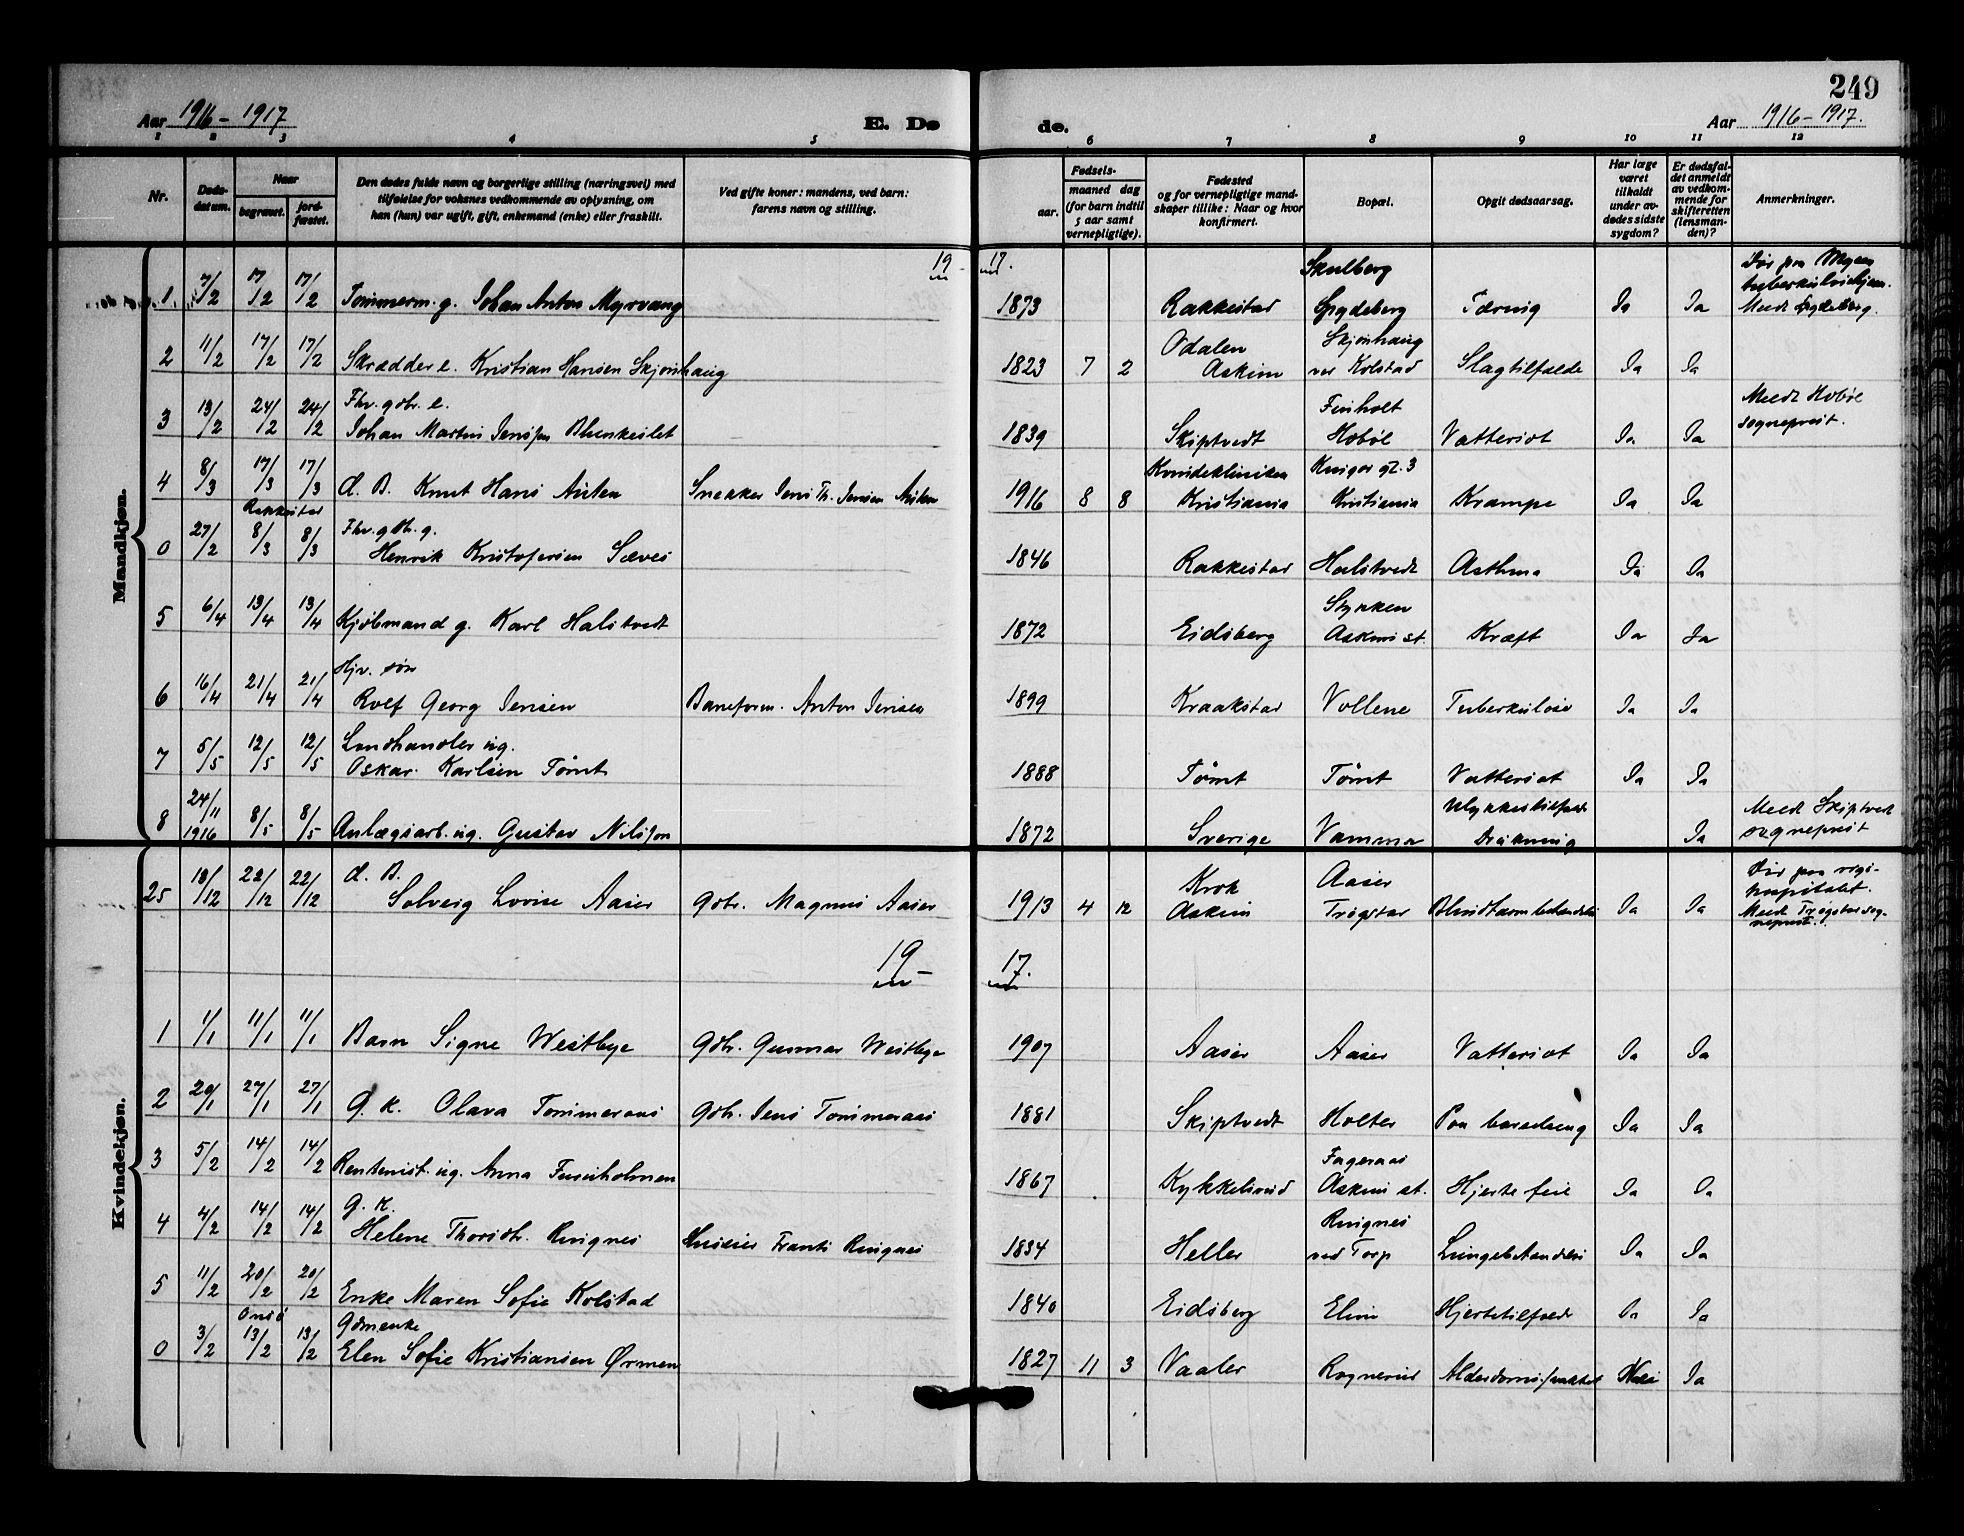 249
Aar 1916-1917
E. Dø
de.
Aar 1916-1917.
1 2 3 4 5
6 7 8 9 10 11 12
Nr.
Døds-
datum.
Naar
begravet.
jord-
fæstet.
Den dødes fulde navn og borgerlige stilling (næringsvei) med
tilføielse for voksnes vedkommende av oplysning, om
han (hun) var ugift, gift, enkemand (enke) eller fraskilt.
Ved gifte koner: mandens, ved barn:
farens navn og stilling.
Fødsels-
aar.
maaned dag
(for barn indtil
5 aar samt
vernepligtige).
Fødested
og for vernepligtige mand-
skaper tillike: Naar og hvor
konfirmert.
Bopæl.
Opgit dødsaarsag.
Har læge
været
tilkaldt
under av-
dødes sidste
sygdom?
Er dødsfal-
det anmeldt
av vedkom-
mende for
skifteretten
(lensman-
den)?
Anmerkninger.
Mandkjøn.
19 - 17.
Skulberg
Død paa
1 7/2 17/2 17/2 Tømmerm. g. Johan Anton Myrvang 1873 Rakkestad Spydeberg Tæring Ja Ja Meldt Spydeberg.
Odalen Skjønhaug
2 11/2 17/2 17/2 Skrædder e. Kristian Hansen Skjønhaug 1823 7 2 Askim ved Kolstad Slagtilfælde Ja Ja
Fhv. gdbr. e. Finholt Meldt Hobøl
3 13/2 24/2 24/2 Johan Martin Jensen 1839 Skiptvedt Hobøl Vattersot Ja Ja sogneprest.
Kvindekliniken gt. 3
4 8/3 17/3 17/3 d. B. Knut Hans Snekker Jens Th. Jensen 1916 8 8 Kristiania Kristiania Krampe Ja Ja
Rakkestad
Fhv. gdb. g.
0 27/2 8/3 8/3 Henrik Kristofersen Sæves 1846 Rakkestad Halstvedt Asthma Ja Ja
Stykken
5 6/4 13/4 13/4 Kjøbmand g. Karl Halstvedt 1872 Eidsberg Askim st. Kræft Ja Ja
Hjv. søn
6 16/4 21/4 21/4 Rolf Georg Jensen Baneform. Anton Jensen 1899 Kraakstad Vollene Tuberkulose Ja Ja
Landhandler ug.
7 5/5 12/5 12/5 Oskar Karlsen Tømt 1888 Tømt Tømt Vattersot Ja Ja
24/11 Ulykkestilfælde Meldt Skiptvedt
8 1916 8/5 8/5 Anlægsarb. ug. Gustav Nilsson 1872 Sverige Vamma Drukning Ja sogneprest
Kvindekjøn.
d. B. Krok Aaser Død paa rigs-
hospitalet.
25 18/12 22/12 22/12 Solveig Lovise Aaser Gdbr. Magnus Aaser 1913 4 12 Askim Trøgstad Blindtarmbetændelse Ja Ja Meldt Trøgstad sog-
neprest.
19 - 17.
1 1/1 11/1 11/1 Barn Signe Westbye Gdbr. Gunnar Westbye 1907 Aaser Aaser Vattersot Ja Ja
2 20/1 27/1 27/1 G. k. Olava Tømmeraas Gdbr. Jens Tømmeraas 1881 Skiptvedt Holter Paa barselseng Ja Ja
Fageraas
3 5/2 14/2 14/2 Rentenist. ug. Anna Fusenholmen 1867 Kykkelsrud Askim st. Hjertefeil Ja Ja
G. k. Ringnes
4 4/2 14/2 14/2 Helene Thorsdtr. Ringnes Huseier Frants Ringnes 1834 Heller ved Torp Lungebetændelse Ja Ja
5 11/2 20/2 20/2 Enke Maren Sofie Kolstad 1840 Eidsberg Elvin Hjertetilfælde Ja Ja
Onsø Gdmenke
0 3/2 13/2 13/2 Elen Sofie Kristiansen Ørmen 1827 11 3 Vaaler Rognerud Alderdomssvakhet Nei Ja